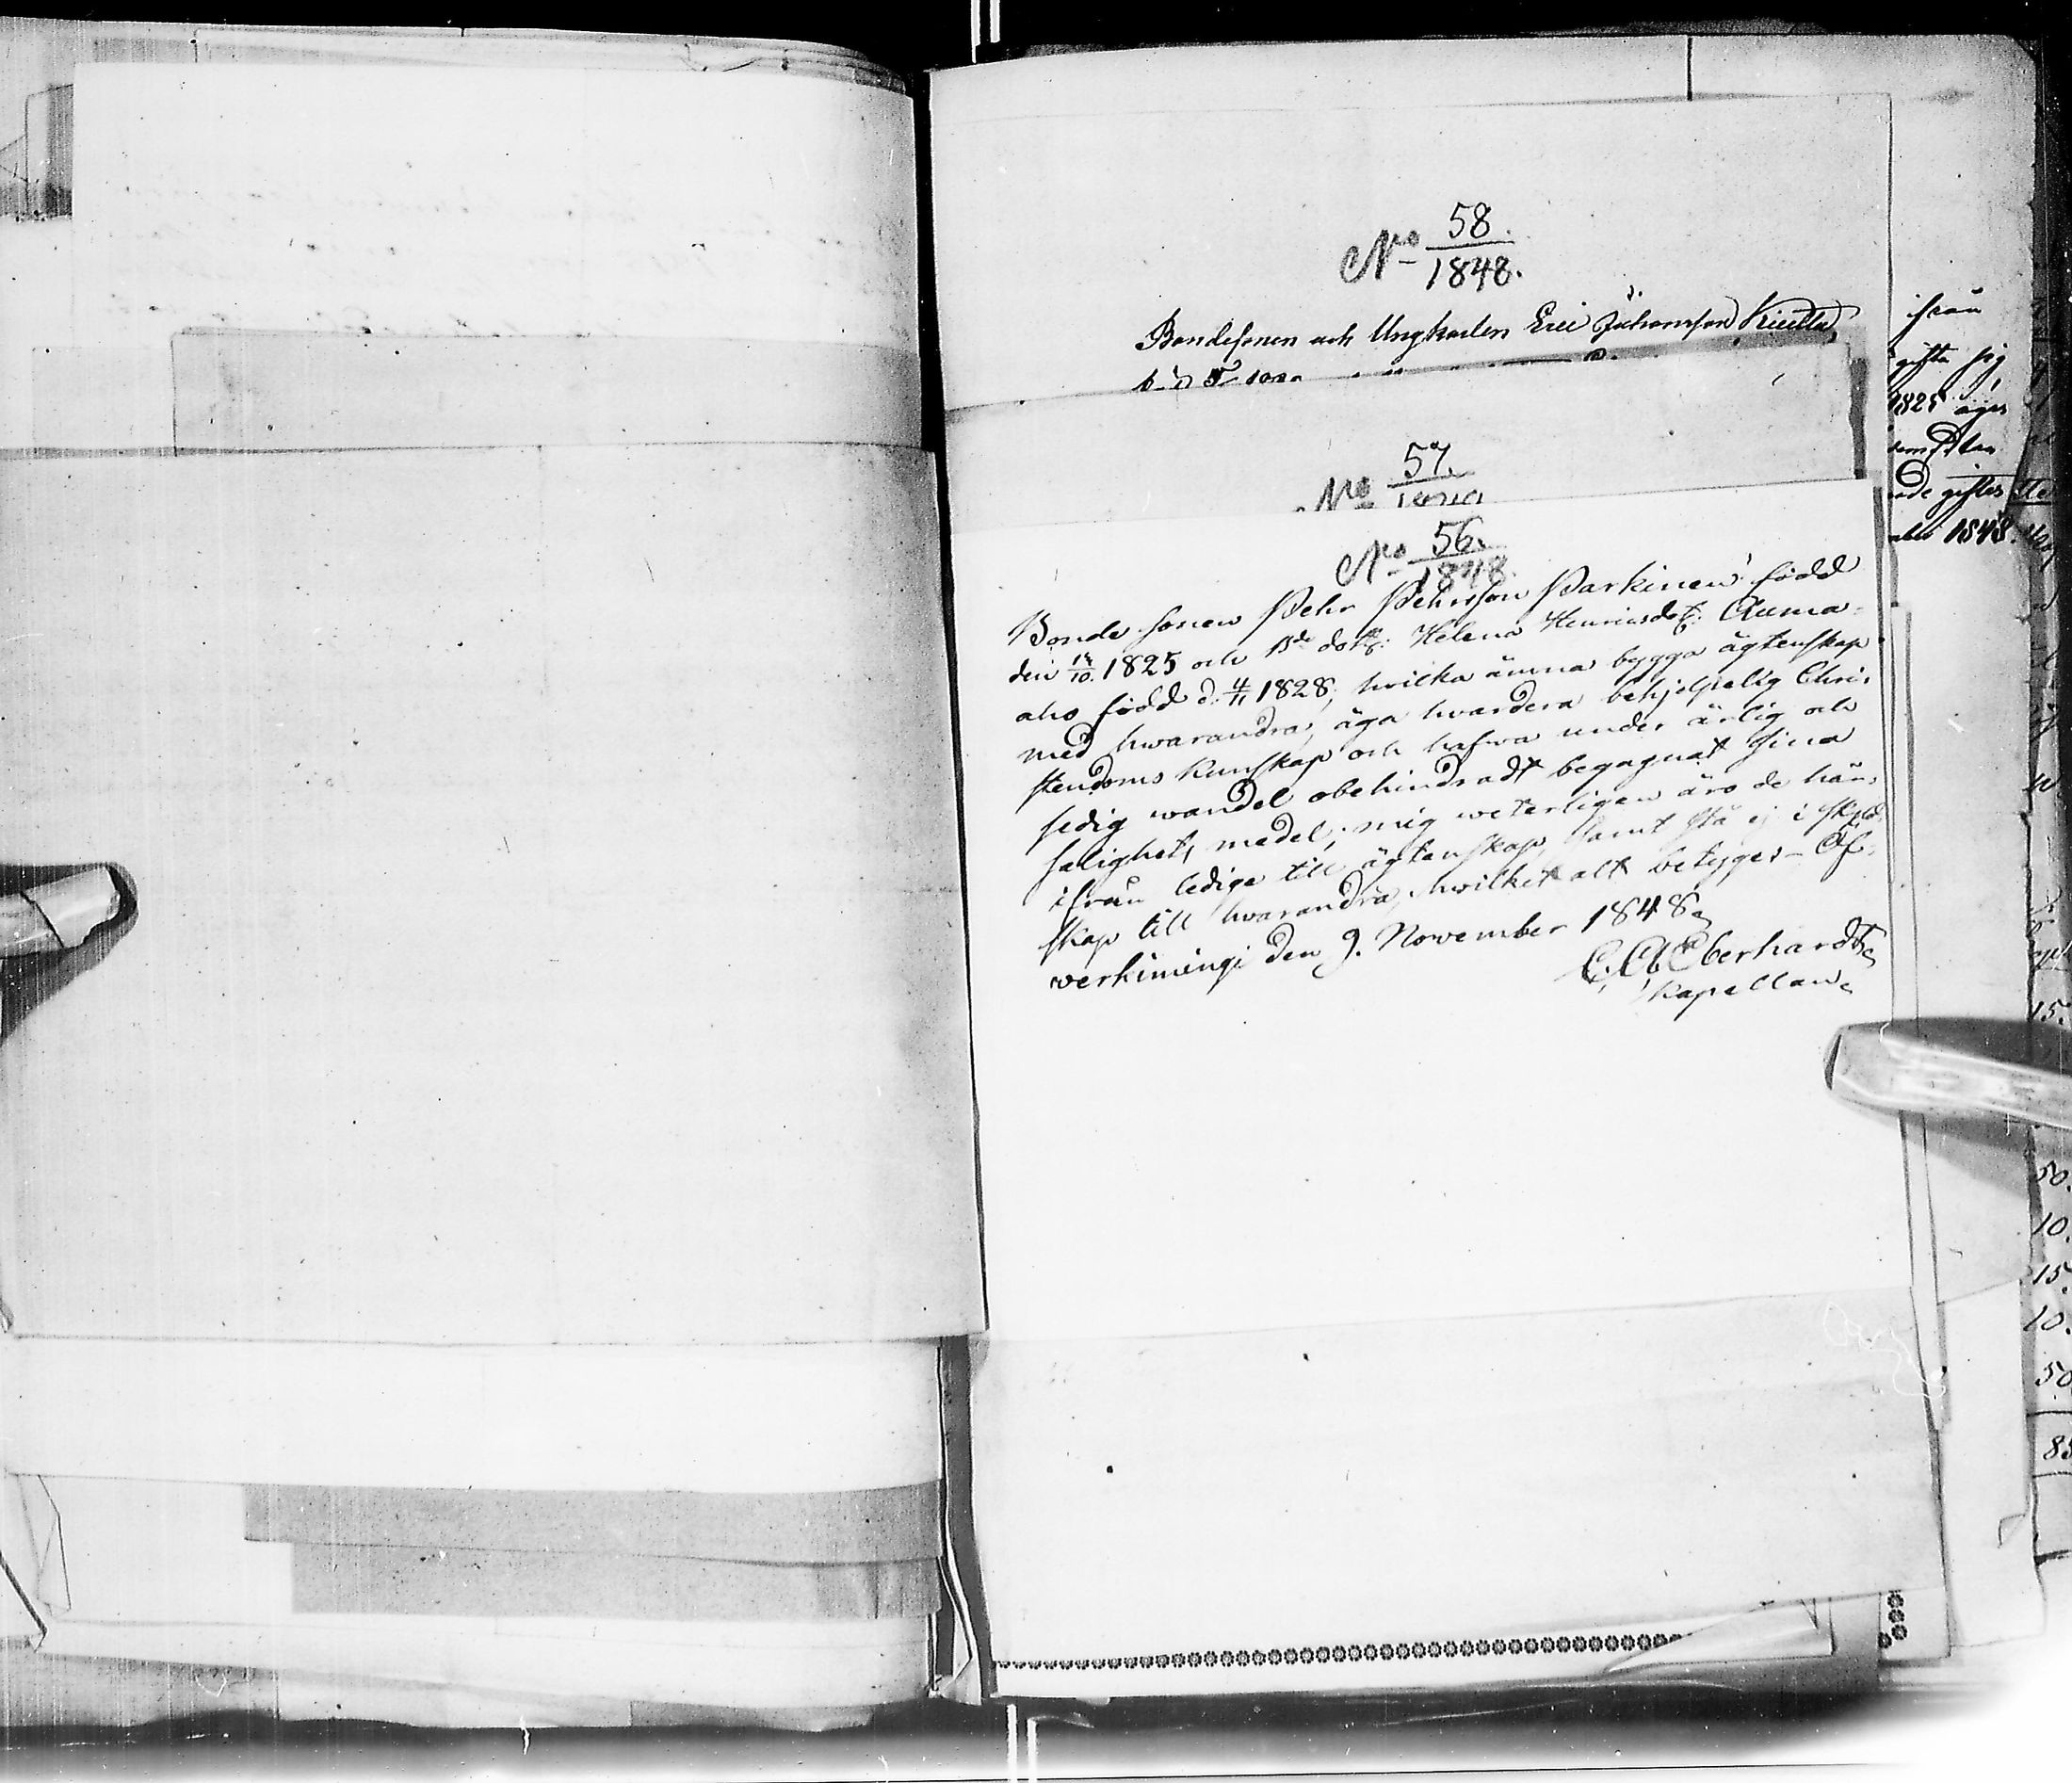 No 58.
1848.
Bondesonen och Ungkarlen Eric Johansson
No 57.
No 56.
1848.
Bonde sonen Pehr Pehrsson Parkinen född
den 1825 och Bde dottr: Helena Henricsdotr: Auma-
aho född d. 4/11 1828, hvilka ämna bygga ägtenskap
med hwarandra, äga hvardera behjelpelig Chri-
stendoms kunskap och hafwa under ärlig och
sedig wandel obehindradt begagnat sina
salighets medel; mig weterligen äro de här-
ifrån ledige till ägtenskap, samt stå ej i skyld-
skap till hwarandra, hwilket alt betyges - Öf-
werkimingi den 9. November 1848.
C. A. Eberhardt
kapellan
ifrån
gifta sig
1825 äger
giftes
1848.
15.
50.
10.
15.
10.
50